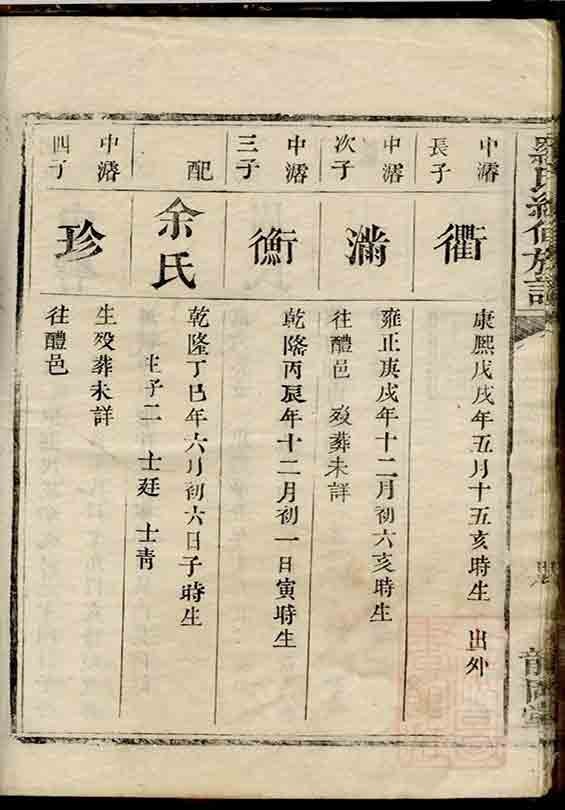 羅氏續修族譜
中濳
長子
衢
康熙戊戌年五月十五亥時生 出外
中濳
次子
滿
雍正庚戌年十二月初六亥時生
往醴邑 歿葬未詳
中濳
三子
衡
乾隆丙辰年十二月初一日寅時生
配
余氏
乾隆丁巳年六月初六日子時生
生子二 士廷 士青
中濳
四子
珍
生歿葬未詳
往醴邑